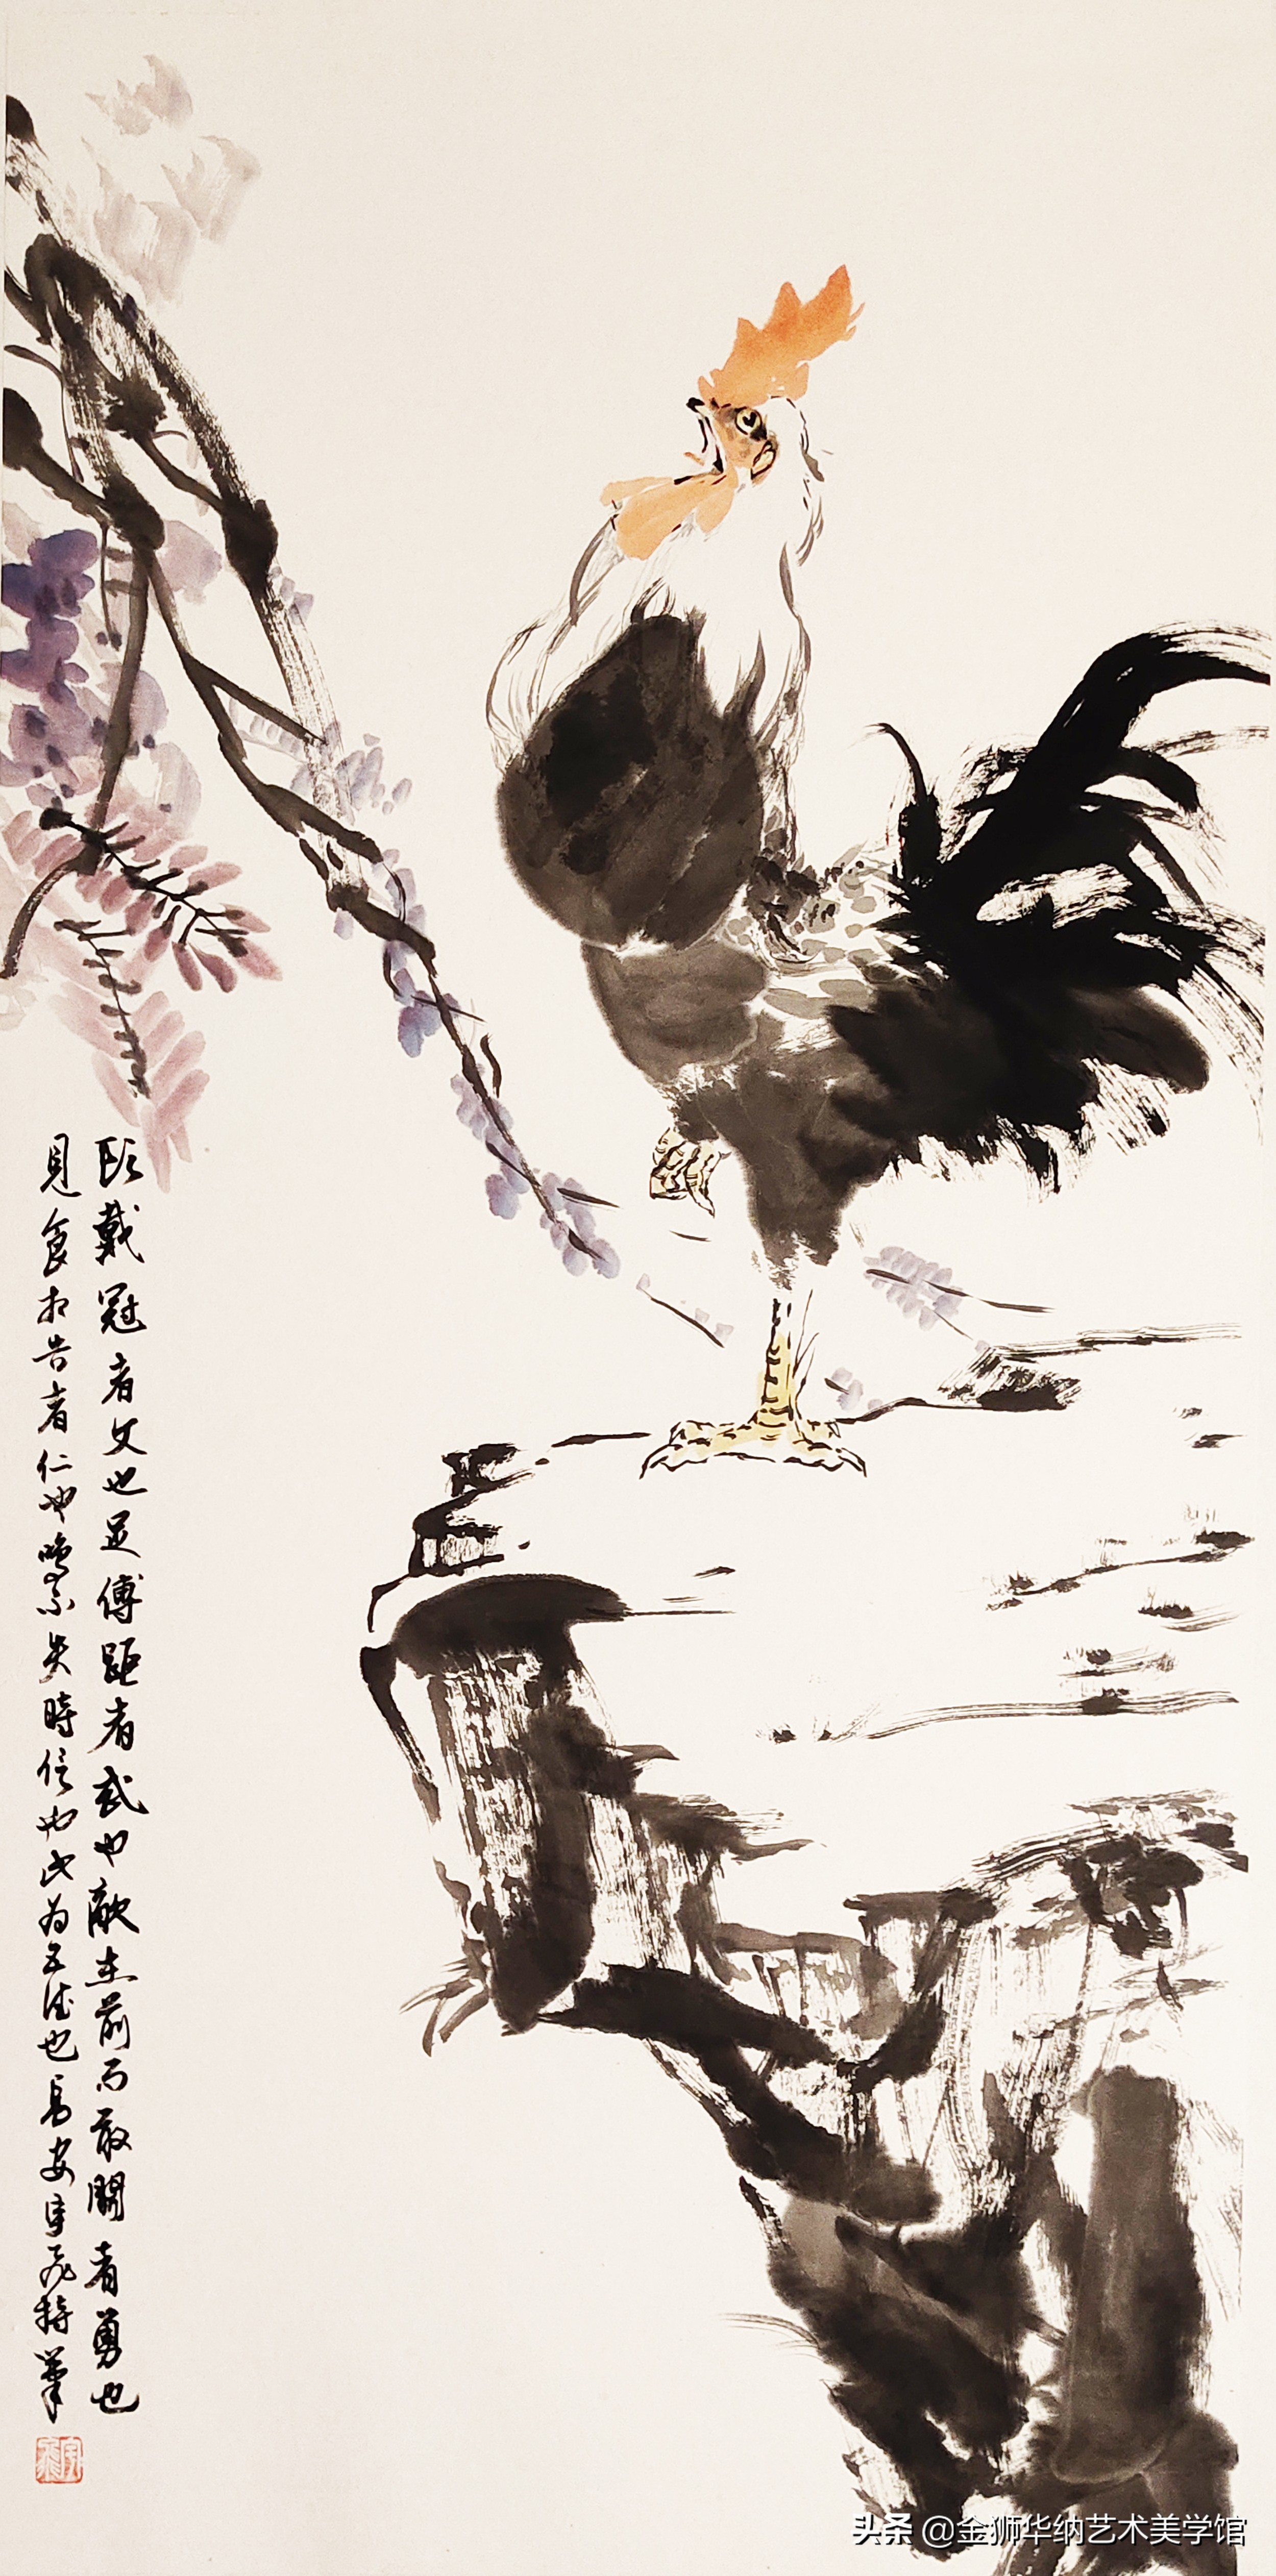 頭戴冠者文也足傅距者武也敵在前而敢鬭者勇也
見食相告者仁也鳴不失時信也此为五德也長安宇飛特筆
头条 @金狮华纳艺术美学馆